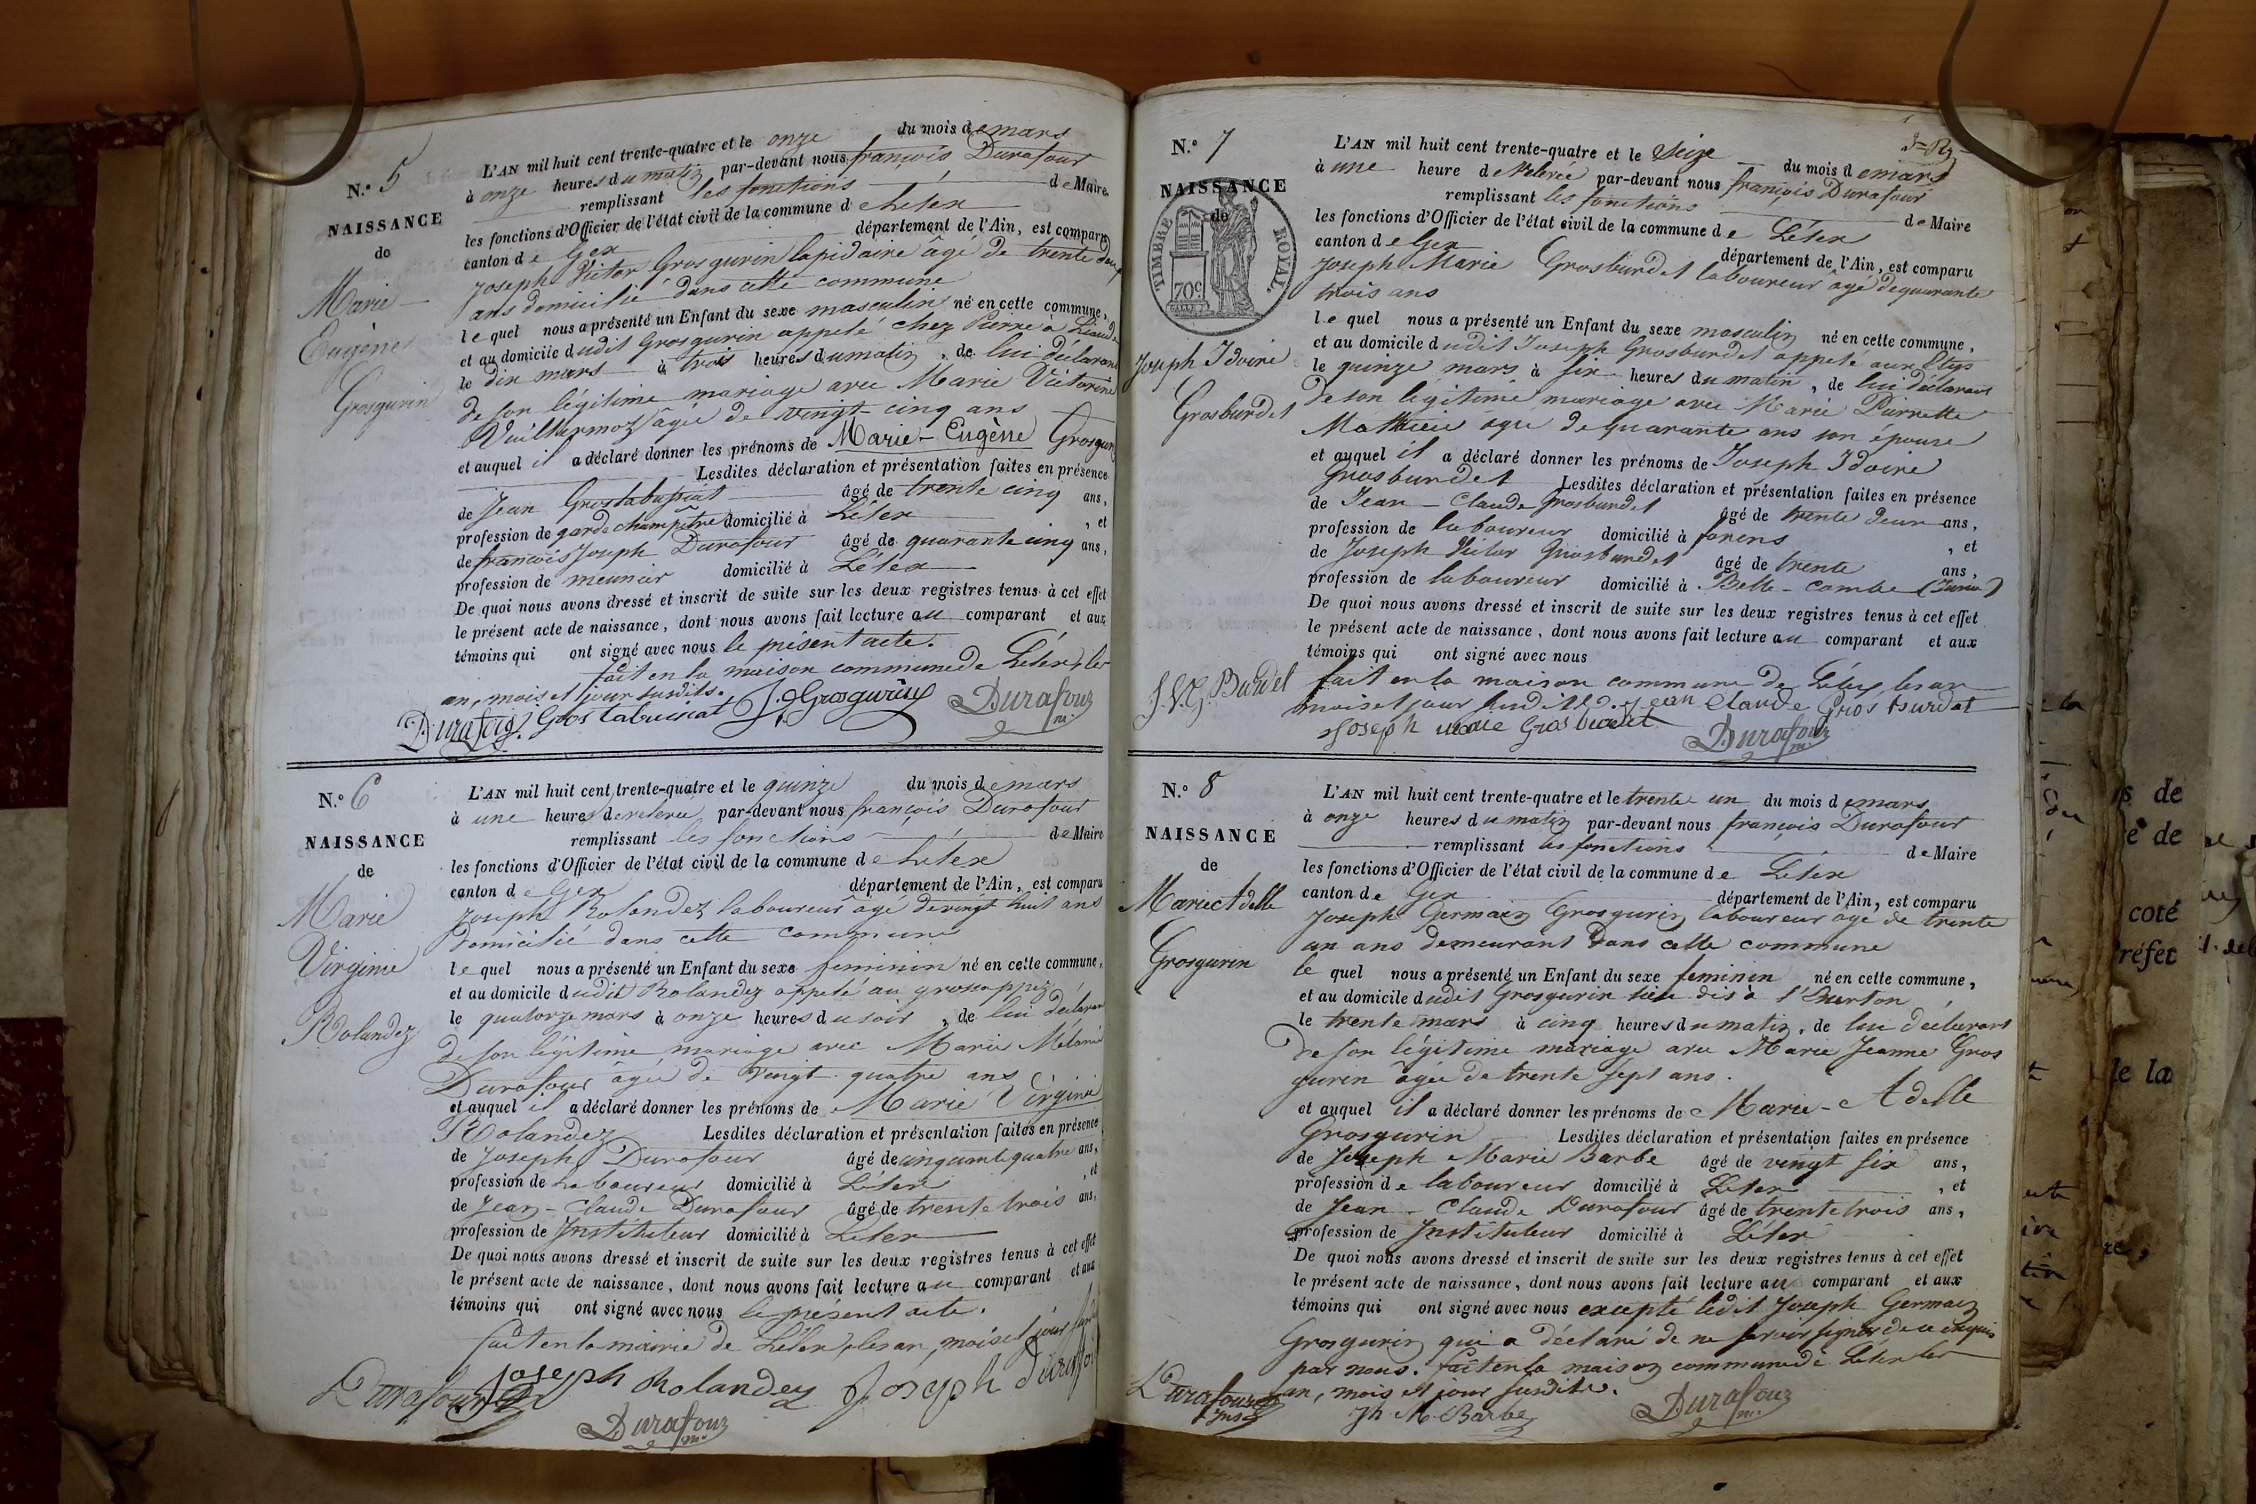 N.º 5
NAISSANCE
de
Marie
Eugène
Grosgurin
L'AN mil huit cent trente-quatre et le onze du mois de mars
à onze heures du matin par-devant nous françois Durafour
remplissant les fonctions de Maire
les fonctions d'Officier de l'état civil de la commune de Lélex
canton de Gex département de l'Ain, est comparu
Joseph Victor Grosgurin lapidaire âgé de trente deux
ans domicilié dans cette commune
lequel nous a présenté un Enfant du sexe masculin né en cette commune,
et au domicile dudit Grosgurin appelé chez Pierre à
le dix mars à trois heures du matin, de lui déclarant
de son légitime mariage avec Marie Victorine
Vuillermoz âgée de vingt cinq ans
et auquel il a déclaré donner les prénoms de Marie-Eugène Grosgurin
Lesdites déclaration et présentation faites en présence
de Jean Groslabuissiat âgé de trente cinq ans,
profession de garde champêtre domicilié à Lélex, et
de françois Joseph Durafour âgé de quarante cinq ans,
profession de meunier domicilié à Lélex
De quoi nous avons dressé et inscrit de suite sur les deux registres tenus à cet effet
le présent acte de naissance, dont nous avons fait lecture au comparant et aux
témoins qui ont signé avec nous le présent acte.
fait en la maison commune de Lélex, les
an, mois et jour susdits.
Durafour. Gros labuissiat J. Grosgurin Durafour
m.
N.º 6
NAISSANCE
de
Marie
Virginie
Rolandez
L'AN mil huit cent trente-quatre et le quinze du mois de mars
à une heures de relevée par-devant nous françois Durafour
remplissant les fonctions de Maire
les fonctions d'Officier de l'état civil de la commune de Lélex
canton de Gex département de l'Ain, est comparu
Joseph Rolandez laboureur âgé de vingt huit ans
domicilié dans cette commune
lequel nous a présenté un Enfant du sexe feminin né en cette commune,
et au domicile dudit Rolandez appelé au
le quatorze mars à onze heures du soir, de lui déclarant
de son légitime mariage avec Marie Mélanie
Durafour âgée de vingt quatre ans
et auquel il a déclaré donner les prénoms de Marie Virginie
Rolandez Lesdites déclaration et présentation faites en présence
de Joseph Durafour âgé de cinquante quatre ans,
profession de Laboureur domicilié à Lélex, et
de Jean-Claude Durafour âgé de trente trois ans,
profession de Instituteur domicilié à Lélex
De quoi nous avons dressé et inscrit de suite sur les deux registres tenus à cet effet
le présent acte de naissance, dont nous avons fait lecture au comparant et aux
témoins qui ont signé avec nous le présent acte.
fait en la mairie de Lélex, les an, mois et jour
Durafour Joseph Rolandez Joseph Durafour
Durafour
m.
N.º 7
NAISSANCE
de
TIMBRE ROYAL.
70c
Joseph Idoine
Grosburdet
L'AN mil huit cent trente-quatre et le Seize du mois de mars
à une heure de Relevée par-devant nous françois Durafour
remplissant les fonctions de Maire
les fonctions d'Officier de l'état civil de la commune de Lélex
canton de Gex département de l'Ain, est comparu
Joseph Marie Grosburdet laboureur âgé de quarante
trois ans
lequel nous a présenté un Enfant du sexe masculin né en cette commune,
et au domicile dudit Joseph Grosburdet appelé aux
le quinze mars à six heures du matin, de lui déclarant
de son légitime mariage avec Marie Pierrette
Mathieu âgée de quarante ans son épouse
et auquel il a déclaré donner les prénoms de Joseph Idoine
Grosburdet Lesdites déclaration et présentation faites en présence
de Jean-Claude Grosburdet âgé de trente deux ans,
profession de laboureur domicilié à forens, et
de Joseph Victor Grosburdet âgé de trente ans,
profession de laboureur domicilié à Belle-combe (Jura)
De quoi nous avons dressé et inscrit de suite sur les deux registres tenus à cet effet
le présent acte de naissance, dont nous avons fait lecture au comparant et aux
témoins qui ont signé avec nous
fait en la maison commune de Lélex, les an
mois et jour susdits. Jean Claude Gros burdet
J.V.G. Burdet
Joseph marie Gros burdet Durafour
m.
N.º 8
NAISSANCE
de
Marie Adelle
Grosgurin
L'AN mil huit cent trente-quatre et le trente un du mois de mars
à onze heures du matin par-devant nous françois Durafour
remplissant les fonctions de Maire
les fonctions d'Officier de l'état civil de la commune de Lélex
canton de Gex département de l'Ain, est comparu
Joseph Germain Grosgurin laboureur âgé de trente
un ans demeurant dans cette commune
le quel nous a présenté un Enfant du sexe feminin né en cette commune,
et au domicile dudit Grosgurin lieu dit à
le trente mars à cinq heures du matin, de lui déclarant
de son légitime mariage avec Marie Jeanne Gros
gurin âgée de trente sept ans.
et auquel il a déclaré donner les prénoms de Marie-Adelle
Grosgurin Lesdites déclaration et présentation faites en présence
de Joseph Marie Barbe âgé de vingt six ans,
profession de laboureur domicilié à Lélex, et
de Jean-Claude Durafour âgé de trente trois ans,
profession de Instituteur domicilié à Lélex
De quoi nous avons dressé et inscrit de suite sur les deux registres tenus à cet effet
le présent acte de naissance, dont nous avons fait lecture au comparant et aux
témoins qui ont signé avec nous excepté ledit Joseph Germain
Grosgurin qui a déclaré de ne savoir signer de ce enquis
par nous. fait en la maison commune de Lélex les
an, mois et jour susdits.
Durafour
Jh M. Barbe Durafour
m.
s de
e de
coté
Préfet
de la